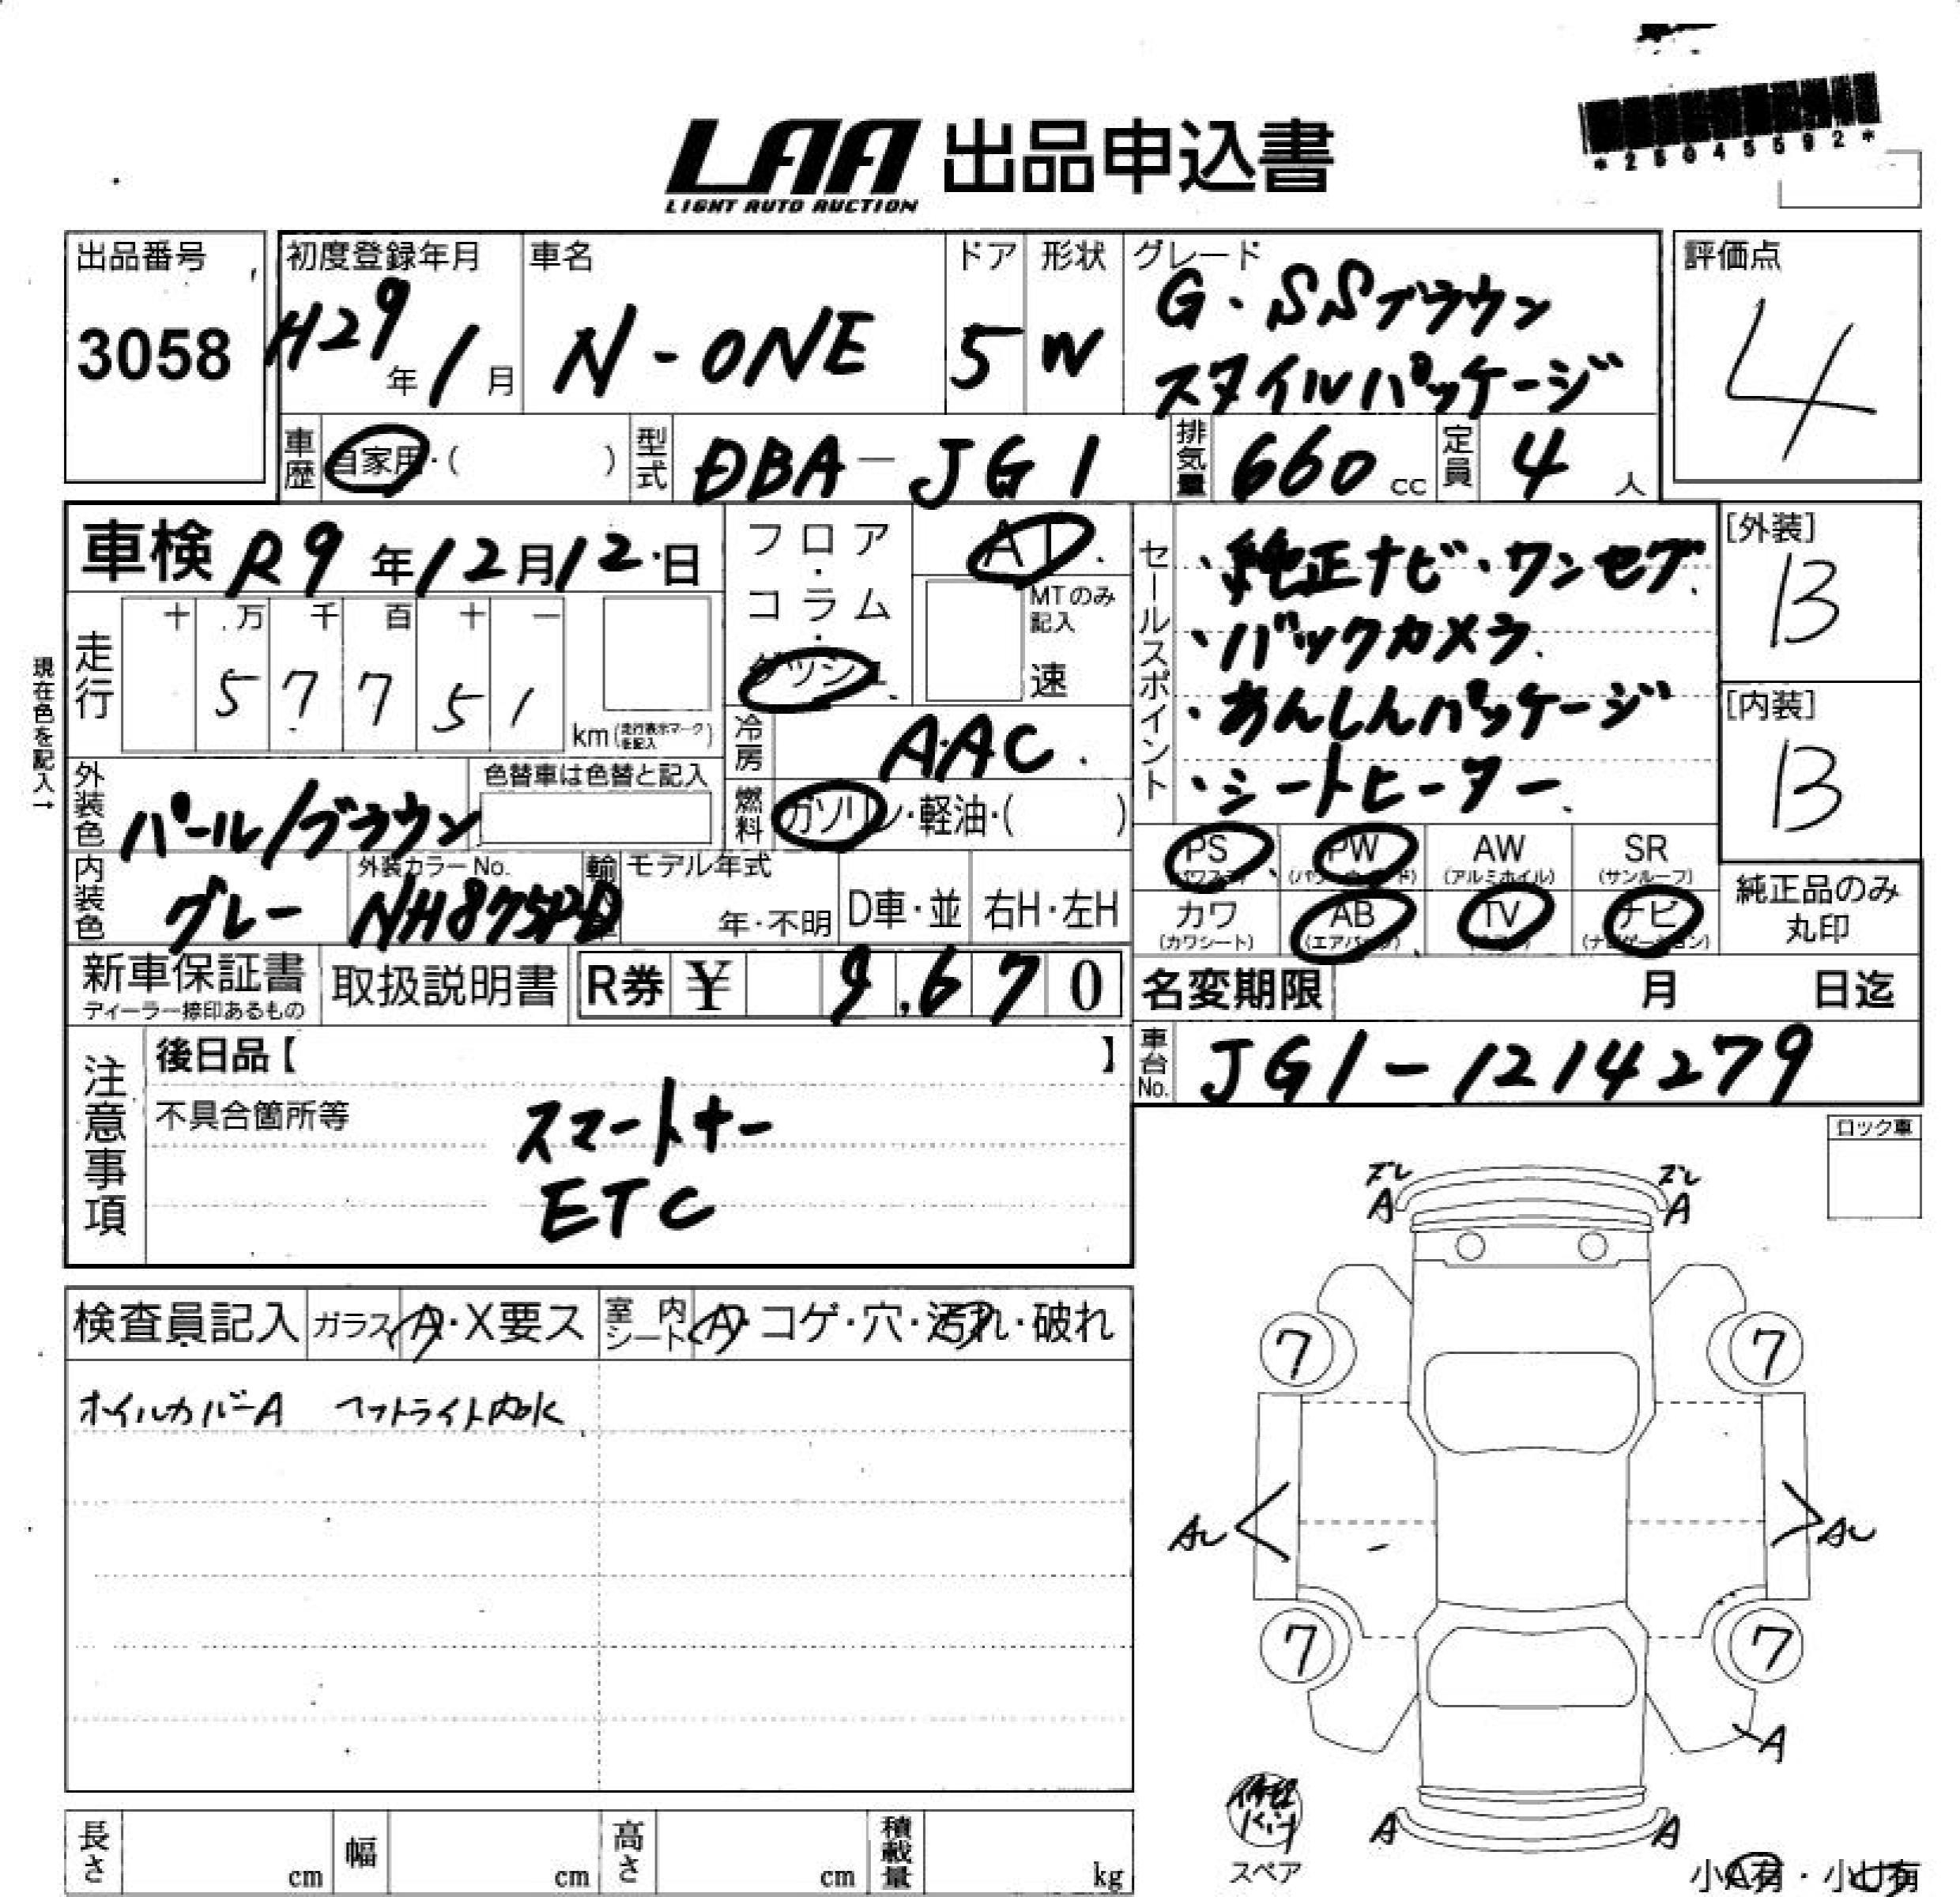 *25045592*
LAA 出品申込書
LIGHT AUTO AUCTION
出品番号
3058
初度登録年月
H29年1月
車名
N-ONE
ドア
5
形状
W
グレード
G・SSブラウン
スタイルパッケージ
評価点
4
車歴
自家用・( )
型式
DBA-JG1
排気量
660cc
定員
4人
車検 R9年12月12日
フロア・コラム・ダッシュ
AT
MTのみ記入
速
セールスポイント
・純正ナビ・ワンセグ
・バックカメラ
・あんしんパッケージ
・シートヒーター
[外装]
B
[内装]
B
走行
十万千百十一
57751
km(走行表示マークを記入)
現在色を記入→
冷房
AAC
外装色
パール/ブラウン
色替車は色替と記入
燃料
ガソリン・軽油・( )
内装色
グレー
外装カラーNo.
NH875PD
モデル年式
年・不明
D車・並
右H・左H
PS
(パワステ)
PW
(パワーウィンド)
AW
(アルミホイル)
SR
(サンルーフ)
カワ
(カワシート)
AB
(エアバック)
TV
ナビ
(ナビゲーション)
純正品のみ
丸印
新車保証書
ディーラー捺印あるもの
取扱説明書
R券 ¥ 9,670
名変期限 月 日迄
車台No.
JG1-1214279
注意事項
後日品【 】
不具合箇所等
スマートキー
ETC
ロック車
ズレ
A
ズレ
A
検査員記入
ガラス
A・X要ス
室内シート
A・コゲ・穴・汚れ・破れ
ホイルカバーA ヘットライト内水
7
7
7
7
A
A
A
スペア
小A有・小U有
長さ
cm
幅
cm
高さ
cm
積載量
kg